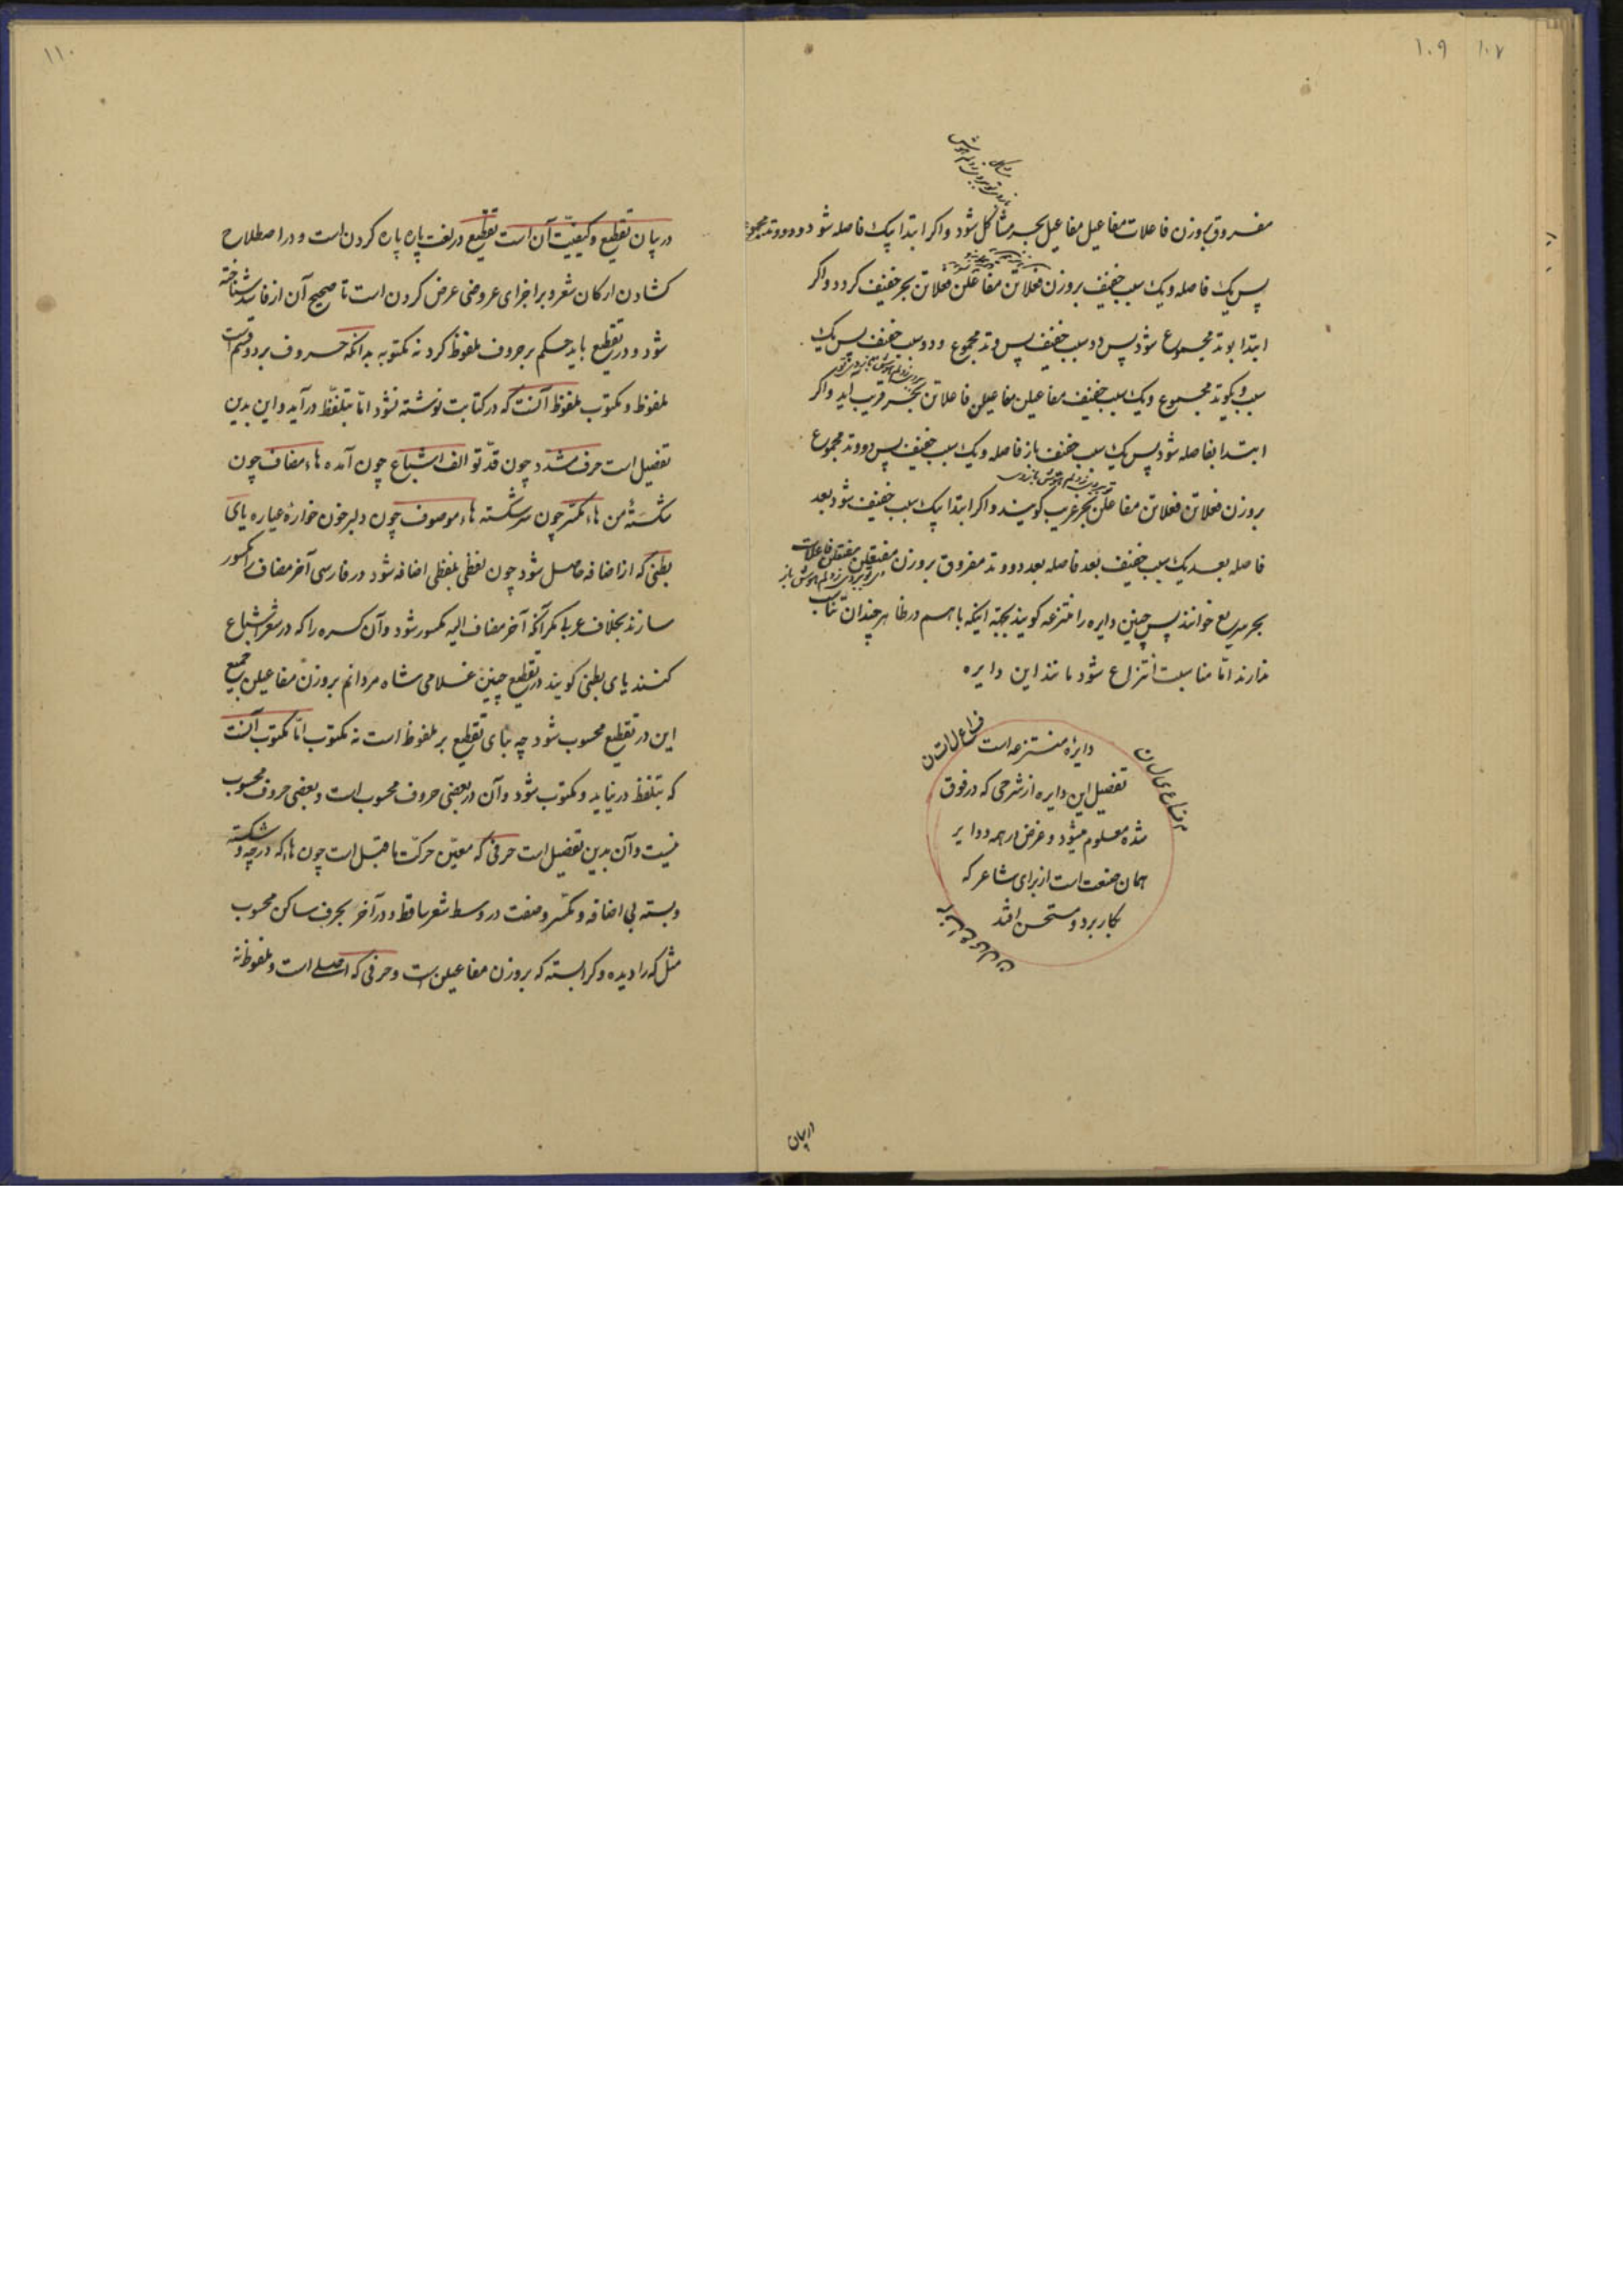 ۱۰۷
۱۰۹
مفروق بروزن فاعلات مفاعیل مفاعیل بحر مشاکل شود و اکر ابتدا بیک فاصله شود و دو وتد مجموع
پس یک فاصله و یک سبب خفیف بروزن فعلاتن مفاعلن فعلاتن بحر خفیف کردد و اکر
ابتدا بوتد مجموع شود پس دو سبب خفیف پس وتد مجموع و دو سبب خفیف پس یک
سبب و یکوتد مجموع و یک سبب خفیف مفاعیلن مفاعیلن فاعلاتن بحر قریب آید و اکر
ابتدا بفاصله شود پس یک سبب خفیف باز فاصله و یک سبب خفیف پس دو وتد مجموع
بروزن فعلاتن فعلاتن مفاعلن بحر غریب کویند و اکر ابتدا بیک سبب خفیف شود بعد
فاصله بعد یک سبب خفیف بعد فاصله بعد دو وتد مفروق بروزن مفتعلن مفتعلن فاعلات
بحر سریع خوانند پس چنین دایره را منتزعه کویند بجهة اینکه با هم در ظاهر چندان تناسب
ندارند امّا مناسبت انتزاع شود مانند این دایره
دایرهٔ منتزعه است
تفصیل این دایره از شرحی که در فوق
شده معلوم میشود و غرض در همه دوایر
همان صنعت است از برای شاعر که
بکار برد و مستحسن افتد
در بیان
۱۱۰
در بیان تقطیع و کیفیّت آن است تقطیع در لغت پاره پاره کردن است و در اصطلاح
کشادن ارکان شعر و بر اجزای عروضی عرض کردن است تا صحیح آن از فاسد شناخته
شود و در تقطیع باید حکم بر حروف ملفوظ کرد نه مکتوبه بدانکه حروف بر دو قسم است
ملفوظ و مکتوب ملفوظ آنست که در کتابت نوشته نشود امّا بتلفّظ در آید و این بدین
تفصیل است حرف مشدّد چون قدّ تو الف اشباع چون آمده هاء مضاف چون
شکستهٔ من هاء مکسّر چون سر شکسته هاء موصوف چون دلبر خون خوارهٔ عیاره یای
بطنی که از اضافه حاصل شود چون لفظی بلفظی اضافه شود در فارسی آخر مضاف را مکسور
سازند بخلاف عربی مکر آنکه آخر مضاف الیه مکسور شود و آن کسره را که در شعر اشباع
کنند یای بطنی کویند در تقطیع چنین غلامی شاه مردانم بروزن مفاعیلن جمیع
این در تقطیع محسوب شود چه بنای تقطیع بر ملفوظ است نه مکتوب امّا مکتوب آنست
که بتلفظ در نیاید و مکتوب شود و آن در بعضی حروف محسوب است و بعضی حروف محسوب
نیست و آن بدین تفصیل است حرفی که معیّن حرکت ما قبل است چون هاء که در چه و شکسته
و بسته بی اضافه و مکسّر و صفت در وسط شعر ساقط و در آخر بحرف ساکن محسوب
مثل که را دیده و کرا بسته که بروزن مفاعیلن است و حرفی که اصلی است و ملفوظ نه